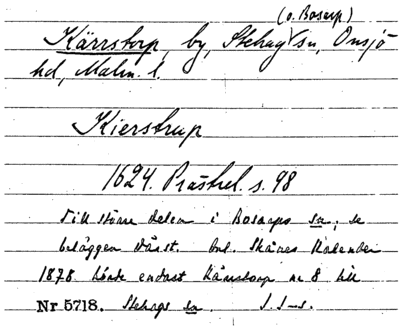 (o. Bosarp)
Kärrstorp, by, Stehag sn, Onsjö
hd, Malm. l.
Kierstrup
1624. Prästrel. s. 98
Till större delen i Bosarps sn; se
beläggen därst. Enl. Skånes Kalender
1878 hörde endast Kärrstorp nr 8 till
Nr 5718. Stehags sn.